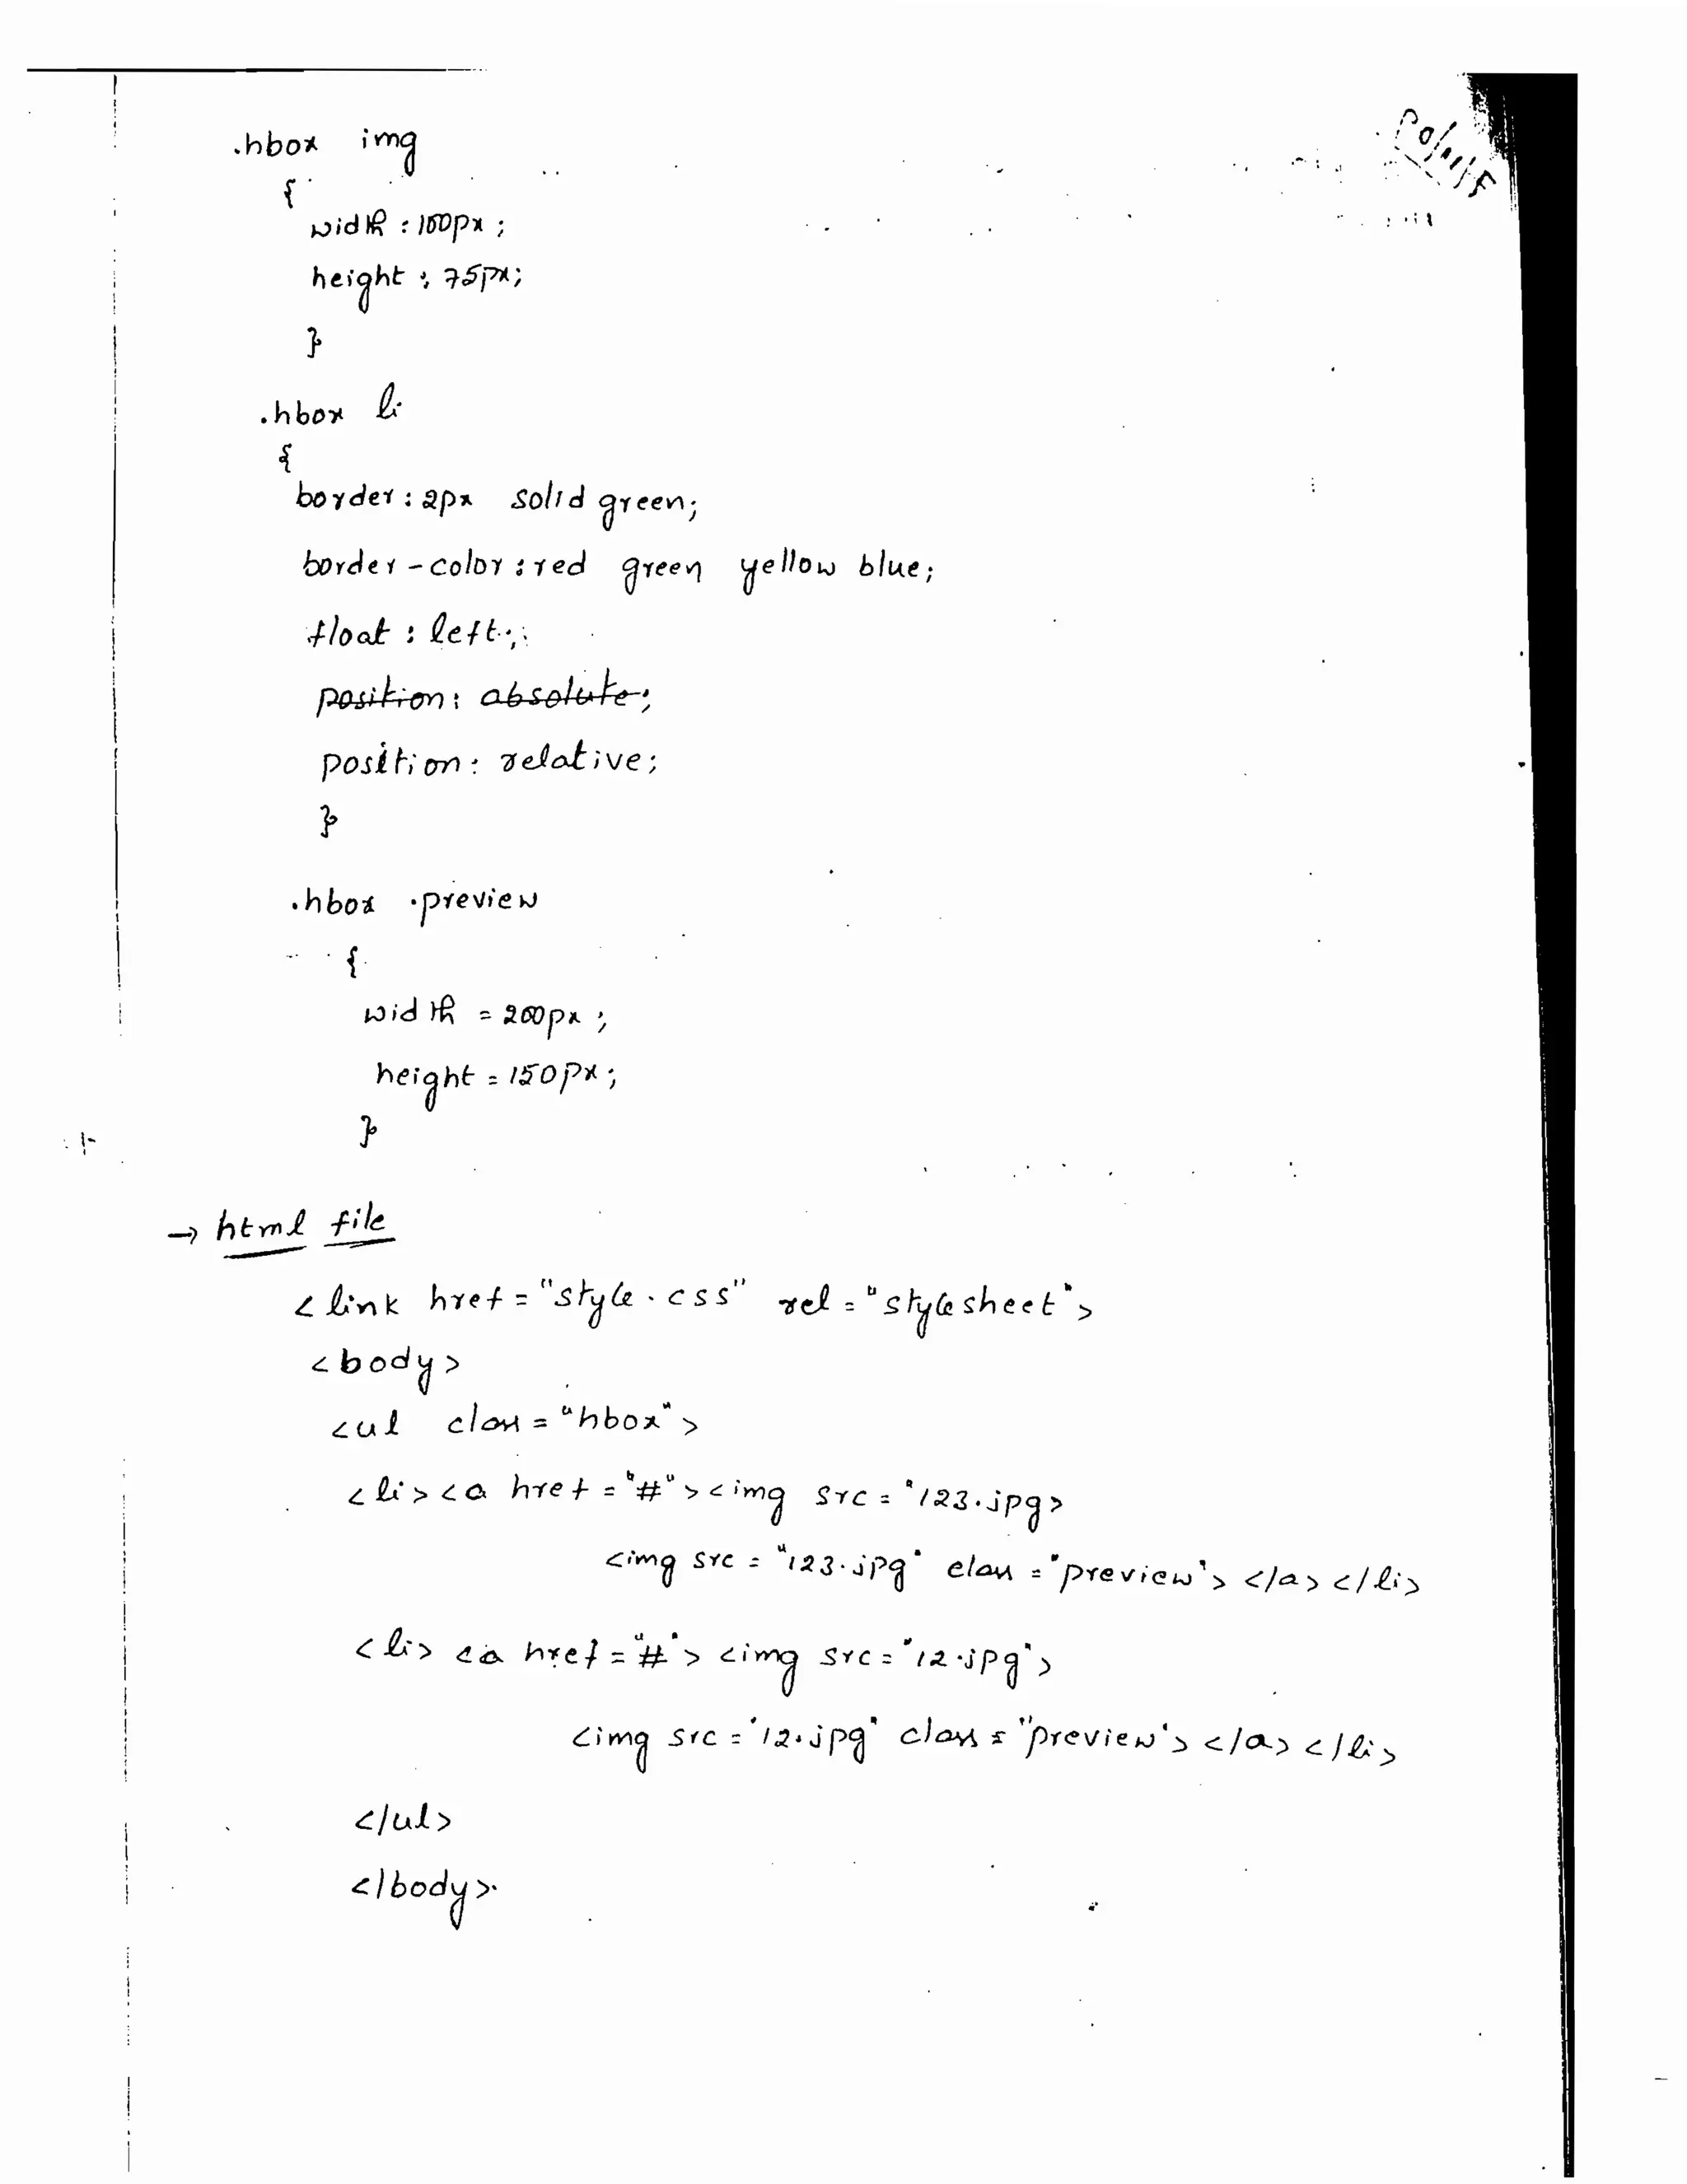 .hbox img
{
width : 100px ;
height : 75px;
}
.hbox li
{
border : 2px solid green;
border-color : red green yellow blue;
float : left;
position : absolute;
position : relative;
}
.hbox .preview
{
width = 200px ;
height = 150px ;
}
→ html file
<link href = "style.css" rel = "stylesheet">
<body>
<ul class = "hbox">
<li><a href = "#"><img src = "123.jpg>
<img src = "123.jpg" class = "preview"> </a></li>
<li> <a href = "#"> <img src = "12.jpg">
<img src = "12.jpg" class = "preview"> </a> </li>
</ul>
</body>